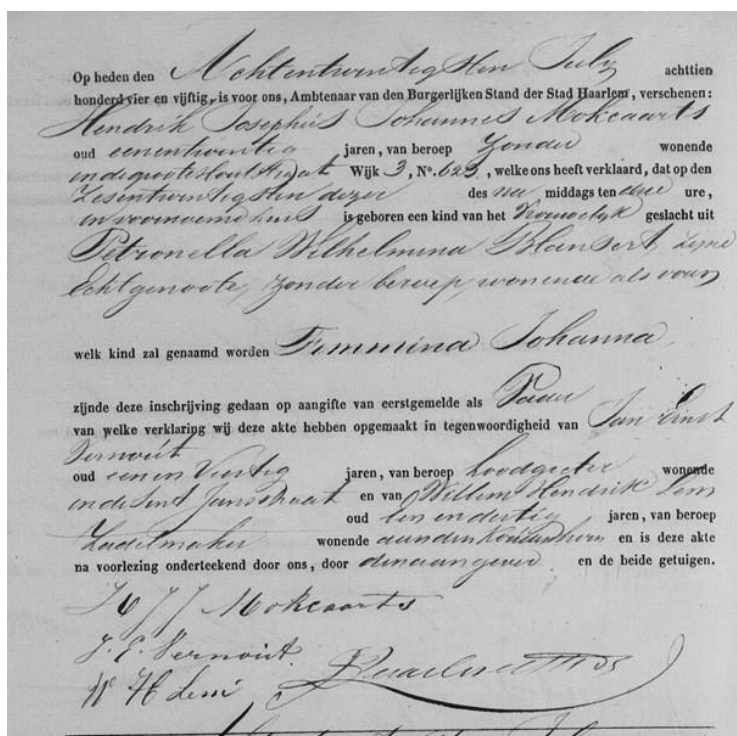 Op heden den Achtentwintigsten July achttien
honderd vier en vijftig, is voor ons, Ambtenaar van den Burgerlijken Stand der Stad Haarlem, verschenen:
Hendrik Josephus Johannes Mokcaarts
oud eenentwintig jaren, van beroep Zonder wonende
in de groote Houtstraat Wijk 3, No. 623, welke ons heeft verklaard, dat op den
Zesentwintigsten dezer des na middags ten drie ure,
in voornoemd huis is geboren een kind van het Vrouwelyk geslacht uit
Petronella Wilhelmina Blansert, zyne
Echtgenoote, zonder beroep, wonende als voren
welk kind zal genaamd worden Femmina Johanna
zijnde deze inschrijving gedaan op aangifte van eerstgemelde als Vader
van welke verklaring wij deze akte hebben opgemaakt in tegenwoordigheid van Jan Ernst
Vernout
oud eenen Veertig jaren, van beroep Loodgieter wonende
in de Sint Jansstraat en van Willem Hendrik
oud een en dertig jaren, van beroep
Zadelmaker wonende aan den en is deze akte
na voorlezing onderteekend door ons, door den aangever en de beide getuigen.
H J J Mokcaarts
J. E. Vernout.
W H